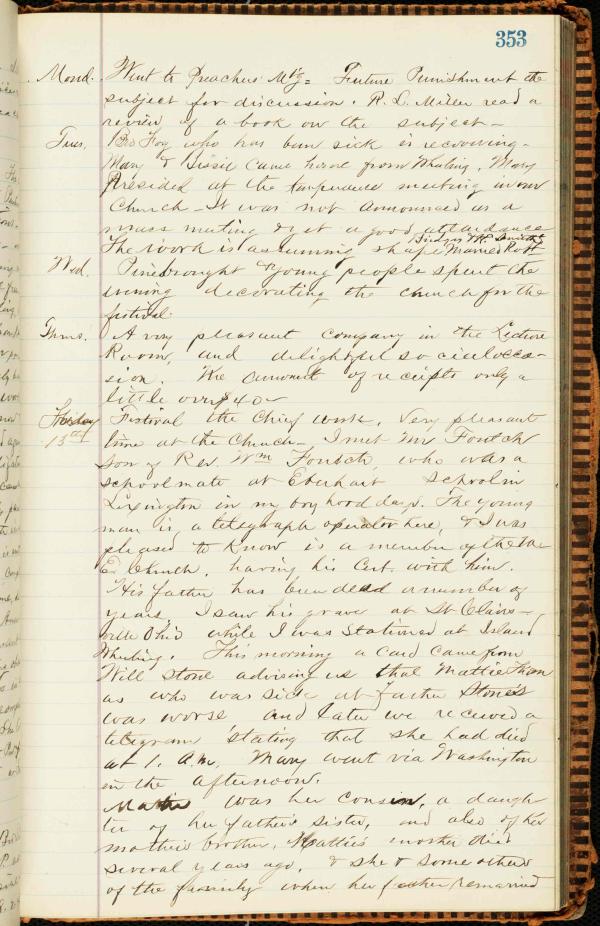 353
Mond. Went to Preachers Mtg = Future Punishment the
subject for discussion. R. L. Miller read a
review of a book on the subject -
Tues. Bro Foy who has been sick is recovering -
Mary & Bessie came home from Wheeling. Mary
Presided at the temperance meeting in our
Church - It was not announced as a
mass meeting & yet a good attendance
The work is assuming shape Married Ro
Wed. Pine brought & young people spent the
evening decorating the church for the
festival.
Thurs. A very pleasant company in the Lecture
Room, and delightful social occa-
sion. The amount of receipts only a
little over $40 -
Friday Festival the chief work. Very pleasant
13th time at the Church - I met Mr Foutch
son of Rev. Wm Foutch, who was a
schoolmate at Eberhart School in
Lexington in my boyhood days. The young
man is a telegraph operator here, & I was
pleased to know is a member of the M.
E. Church, having his Cert. with him.
His father has been dead a number of
years, I saw his grave at St Clairs-
ville Ohio while I was stationed at Island
Wheeling. This morning a card came from
Will Stone advising us that Mattie Thom
as who was sick at Father Stone's
was worse and later we received a
telegram stating that she had died
at 1. a.m. Mary went via Washington
in the afternoon.
Mattie was her cousin, a daugh
ter of her father's sister, and also of her
mother's brother. Mattie's mother died
several years ago, & she & some others
of the family when her father remarried